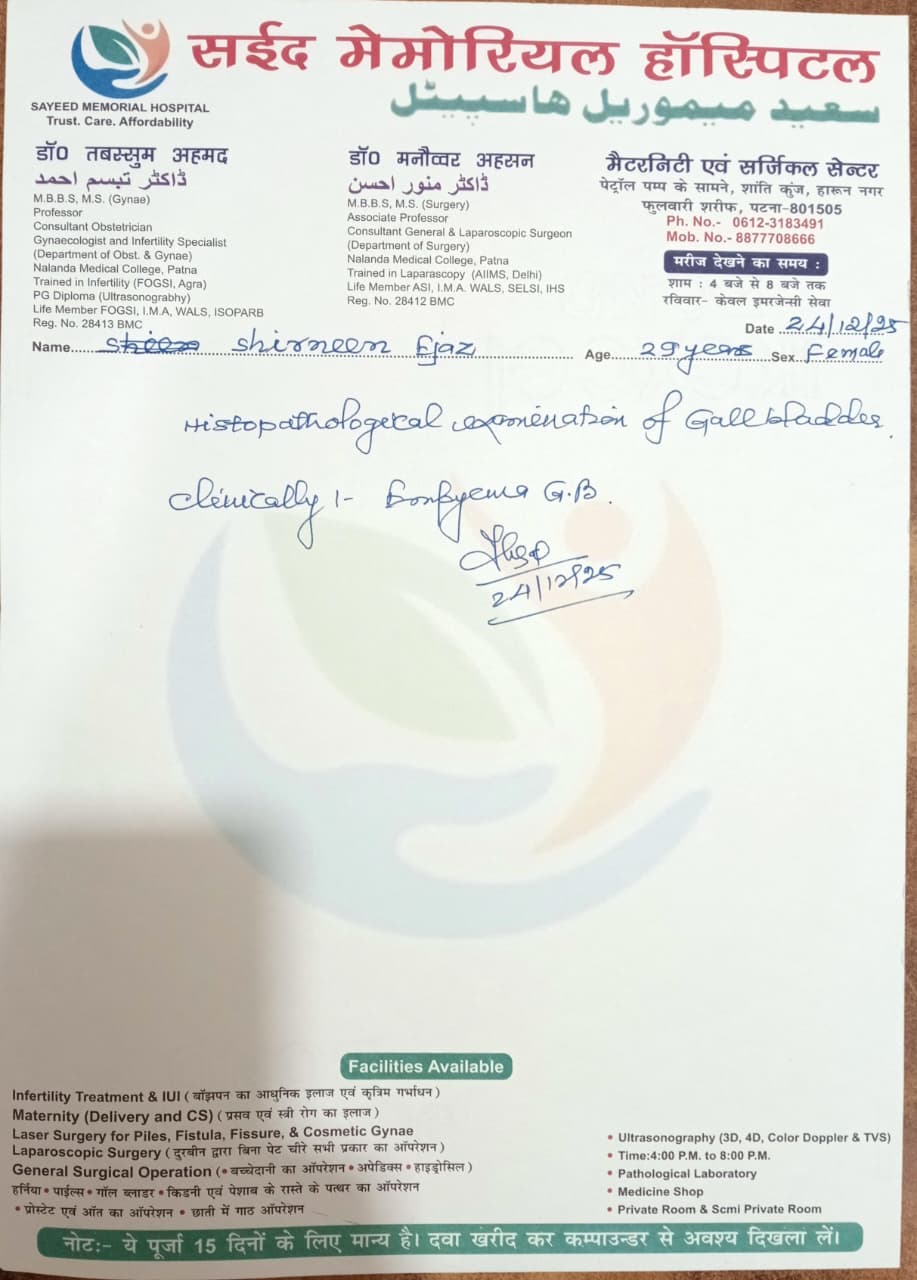 सईद मेमोरियल हॉस्पिटल
سعید میموریل هاسپیٹل
SAYEED MEMORIAL HOSPITAL
Trust. Care. Affordability
डॉ0 तबस्सुम अहमद
ڈاکٹر تبسم احمد
M.B.B.S, M.S. (Gynae)
Professor
Consultant Obstetrician
Gynaecologist and Infertility Specialist
(Department of Obst. & Gynae)
Nalanda Medical College, Patna
Trained in Infertility (FOGSI, Agra)
PG Diploma (Ultrasonograbhy)
Life Member FOGSI, I.M.A, WALS, ISOPARB
Reg. No. 28413 BMC
डॉ0 मनौव्वर अहसन
ڈاکٹر منور احسن
M.B.B.S, M.S. (Surgery)
Associate Professor
Consultant General & Laparoscopic Surgeon
(Department of Surgery)
Nalanda Medical College, Patna
Trained in Laparascopy (AIIMS, Delhi)
Life Member ASI, I.M.A. WALS, SELSI, IHS
Reg. No. 28412 BMC
मैटरनिटी एवं सर्जिकल सेन्टर
पेट्रॉल पम्प के सामने, शांति कुंज, हारून नगर
फुलवारी शरीफ, पटना-801505
Ph. No.- 0612-3183491
Mob. No.- 8877708666
मरीज देखने का समय :
शाम : 4 बजे से 8 बजे तक
रविवार- केवल इमरजेन्सी सेवा
Date 24/12/25
Name shirneen Ejaz Age 29 years Sex Female
Histopathological examination of Gall bladder.
Clinically :- Empyema G.B.
24/12/25
Facilities Available
Infertility Treatment & IUI ( बॉझपन का आधुनिक इलाज एवं कृत्रिम गर्भाधन )
Maternity (Delivery and CS) ( प्रसव एवं स्त्री रोग का इलाज )
Laser Surgery for Piles, Fistula, Fissure, & Cosmetic Gynae
Laparoscopic Surgery ( दुरबीन द्वारा बिना पेट चीरे सभी प्रकार का ऑपरेशन )
General Surgical Operation (• बच्चेदानी का ऑपरेशन • अपेडिक्स • हाइड्रोसिल )
हर्निया • पाईल्स • गॉल ब्लाडर • किडनी एवं पेशाब के रास्ते के पत्थर का ऑपरेशन
• प्रोस्टेट एवं ऑत का ऑपरेशन • छाती में गाठ ऑपरेशन
• Ultrasonography (3D, 4D, Color Doppler & TVS)
• Time:4:00 P.M. to 8:00 P.M.
• Pathological Laboratory
• Medicine Shop
• Private Room & Scmi Private Room
नोटः- ये पूर्जा 15 दिनों के लिए मान्य है। दवा खरीद कर कम्पाउन्डर से अवश्य दिखला लें।